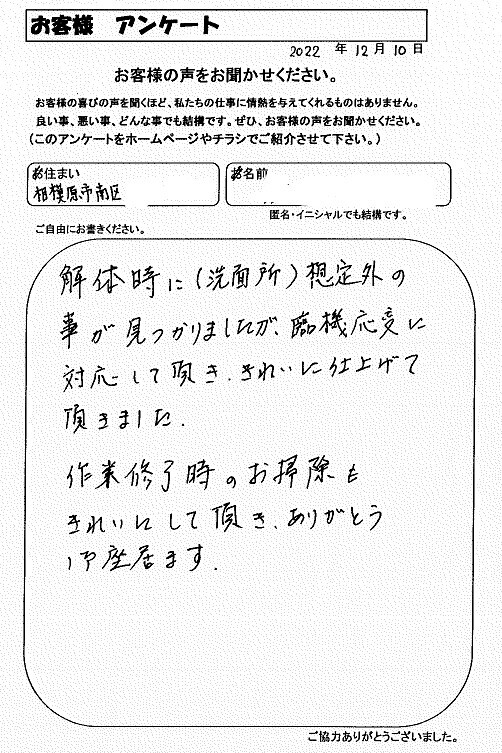 お客様 アンケート
2022 年 12月 10日
お客様の声をお聞かせください。
お客様の喜びの声を聞くほど、私たちの仕事に情熱を与えてくれるものはありません。
良い事、悪い事、どんな事でも結構です。ぜひ、お客様の声をお聞かせください。
(このアンケートをホームページやチラシでご紹介させて下さい。)
お住まい
お名前
相模原市南区
匿名・イニシャルでも結構です。
ご自由にお書きください。
解体時に(洗面所)想定外の
事が見つかりましたが、臨機応変に
対応して頂き、きれいに仕上げて
頂きました.
作業修了時のお掃除も
きれいにして頂き、ありがとう
御座居ます.
ご協力ありがとうございました。